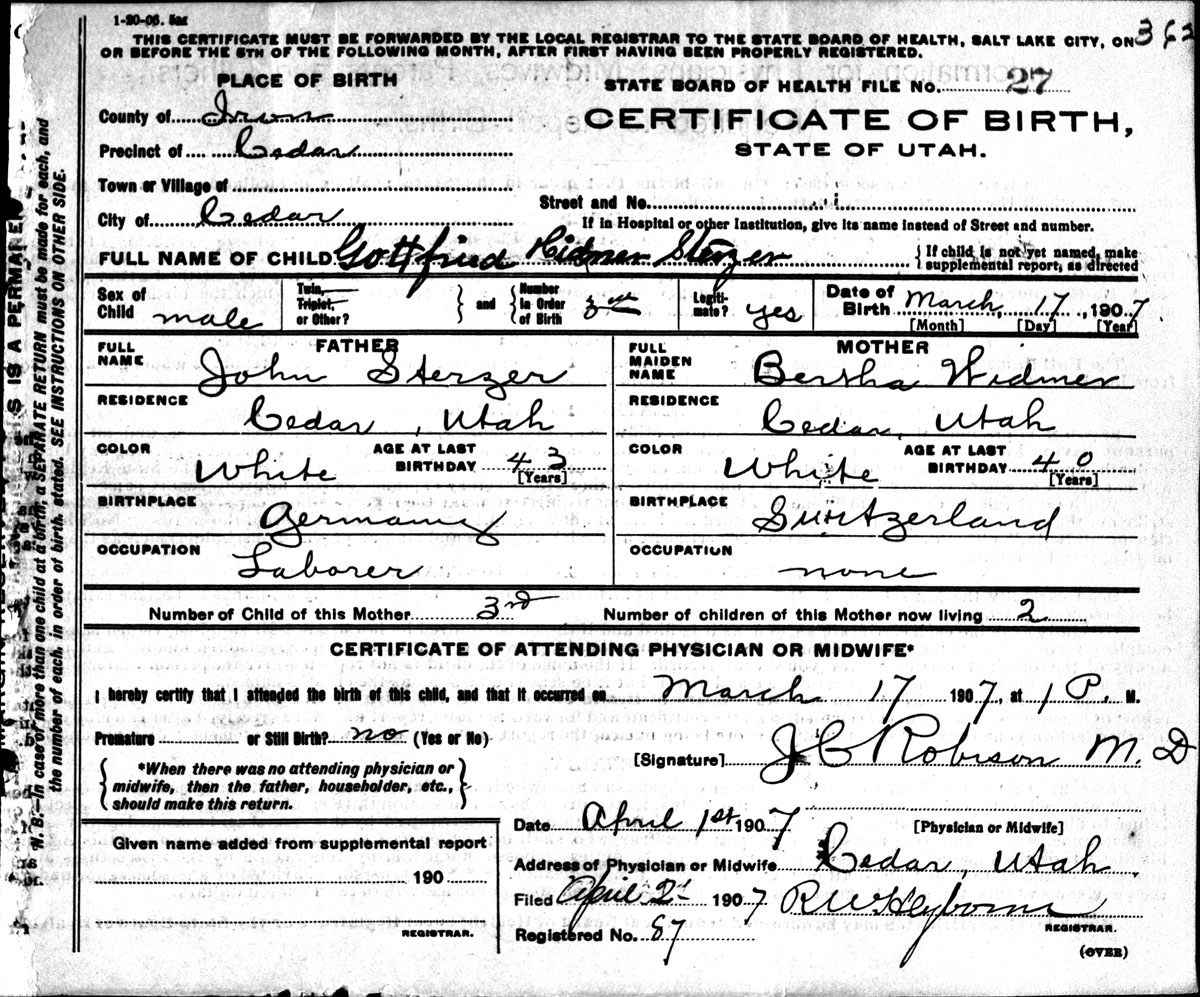 1-20-06. 5m
362
THIS CERTIFICATE MUST BE FORWARDED BY THE LOCAL REGISTRAR TO THE STATE BOARD OF HEALTH, SALT LAKE CITY, ON
OR BEFORE THE 5TH OF THE FOLLOWING MONTH, AFTER FIRST HAVING BEEN PROPERLY REGISTERED.
PLACE OF BIRTH
STATE BOARD OF HEALTH FILE NO. 27
County of Iron
CERTIFICATE OF BIRTH,
Precinct of Cedar
STATE OF UTAH.
Town or Village of
Street and No.
City of Cedar
If in Hospital or other Institution, give its name instead of Street and number.
FULL NAME OF CHILD Gottfried Widmer Sterzer
{If child is not yet named, make
supplemental report, as directed
Sex of Child male
Twin, Triplet, or Other?
and
Number in Order of Birth 3rd
Legitimate? yes
Date of Birth March, 17, 1907
[Month] [Day] [Year]
FATHER
MOTHER
FULL NAME John Sterzer
FULL MAIDEN NAME Bertha Widmer
RESIDENCE
RESIDENCE
Cedar, Utah
Cedar, Utah
COLOR White
AGE AT LAST BIRTHDAY 43 [Years]
COLOR White
AGE AT LAST BIRTHDAY 40 [Years]
BIRTHPLACE Germany
BIRTHPLACE Switzerland
OCCUPATION Laborer
OCCUPATION none
Number of Child of this Mother 3rd
Number of children of this Mother now living 2
CERTIFICATE OF ATTENDING PHYSICIAN OR MIDWIFE*
I hereby certify that I attended the birth of this child, and that it occurred on March 17 1907, at 1 P. M.
Premature or Still Birth? no (Yes or No)
[Signature] J C Robison M.D
{*When there was no attending physician or
midwife, then the father, householder, etc.,
should make this return.}
Date April 1st 1907
[Physician or Midwife]
Given name added from supplemental report
190
REGISTRAR.
Address of Physician or Midwife Cedar, Utah
Filed April 2 1907
REGISTRAR.
Registered No. 87
(OVER)
N. B.—In case of more than one child at a birth, a SEPARATE RETURN must be made for each, and
the number of each, in order of birth, stated. SEE INSTRUCTIONS ON OTHER SIDE.
IS A PERMANEN